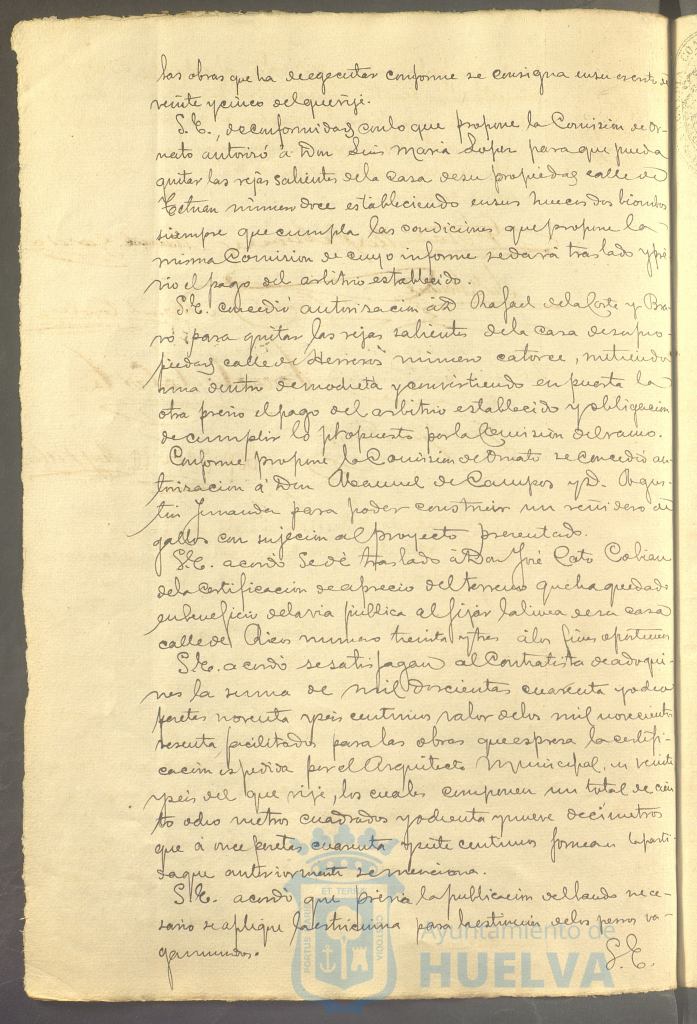 las obras que ha de egecutar conforme se consigna en su escrito de
veinte y cinco del que rije.
S. E., de conformidad con lo que propone la Comision de Or-
nato autorizó á Don Luis Maria Lopez para que pueda
quitar las rejas salientes de la casa de su propiedad calle de
Tetuan número doce estableciendo en sus huecos dos biombos
siempre que cumpla las condiciones que propone la
misma Comision de cuyo informe se dará traslado y pré-
vio el pago del arbitrio establecido.
S. E. concedió autorizacion á D Rafael de la Corte y Bra-
vo para quitar las rejas salientes de la casa de su pro-
piedad calle de Herreros número catorce, metiendo
una dentro de mocheta y convirtiendo en puerta la
otra previo el pago del arbitrio establecido y obligacion
de cumplir lo propuesto por la Comision del ramo.
Conforme propone la Comision de Ornato se concedió au-
torizacion á Don Manuel de Campos y D. Agus-
tin para poder construir un reñidero de
gallos con sujecion al proyecto presentado.
S. E. acordó se dé traslado á Don José Cobian
de la certificacion de aprecio del terreno que ha quedado
en beneficio de la via pública al fijar la linea de su casa
calle de Ricos numero treinta y tres á los fines oportunos
S. E. acordó se satisfagan al Contratista de adoqui-
nes la suma de mil doscientas cuarenta y ocho
pesetas noventa y seis centimos valor de los mil novecientos
sesenta facilitados para las obras que espresa la certifi-
cacion espedida por el Arquitecto Municipal en veinte
y seis del que rije, los cuales componen un total de cien-
to ocho metros cuadrados y ochenta y nueve decímetros
que á once pesetas cuarenta y siete centimos forman la parti-
da que anteriormente se menciona.
S. E. acordó que prévia la publicacion del bando nece-
sario se aplique la estricnina para la estincion de los perros va-
gamundos.
S. E.
ET TERRAE
PORTUS MARIS
CUSTODIA
Ayuntamiento de
HUELVA